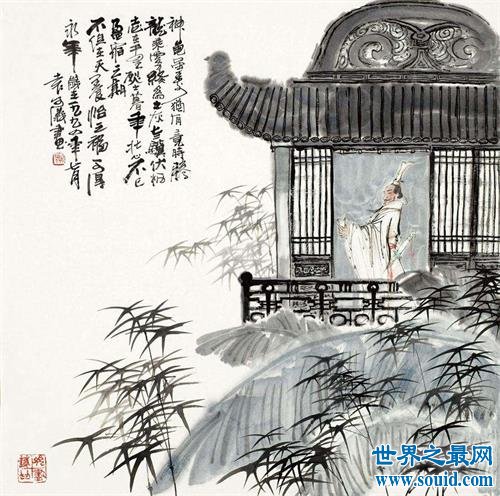 神龜雖壽猶有竟時騰
蛇乘霧終為土灰老驥伏櫪
志在千里烈士暮年壯心不已
盈縮之期
不但在天養怡之福可得
永年 一九九四年七月
世界之最网
www.souid.com